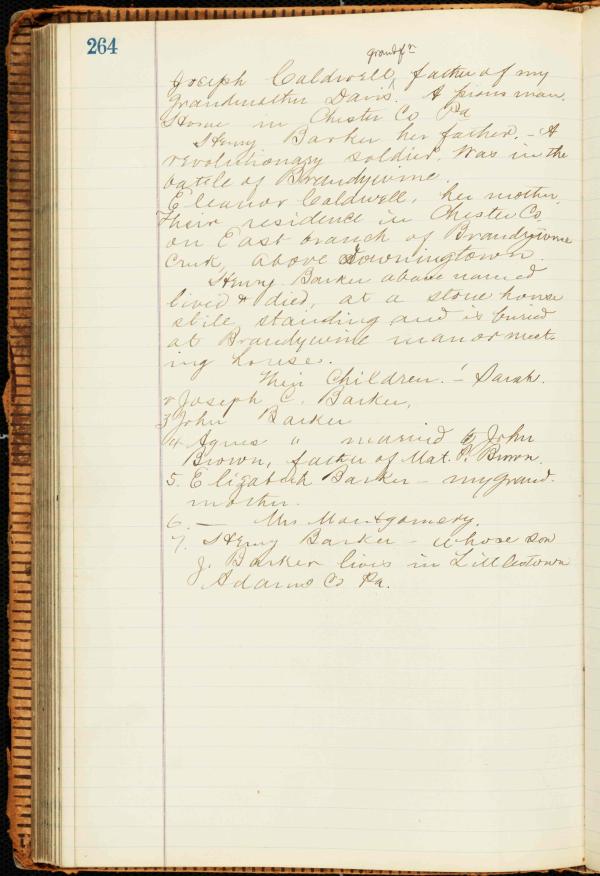 264
grandfr
Joseph Caldwell, father of my
Grandmother Davis. A pious man.
Home in Chester Co Pa
Henry Barker her father. - A
revolutionary soldier. Was in the
battle of Brandywine.
Eleanor Caldwell, her mother.
Their residence in Chester Co.
on East branch of Brandywine
Creek, above Downingtown.
Henry Barker above named
lived & died, at a stone house
still standing and is buried
at Brandywine manor meet-
ing house.
Their Children. - 1 Sarah.
2 Joseph C. Barker,
3 John Barker
4 Agnes " married to John
Brown, father of Mat. P. Brown.
5. Elizabeth Barker - my grand-
mother.
6. — Mrs Montgomery.
7. Henry Barker - whose son
J. Barker lives in Littlestown
Adams Co Pa.